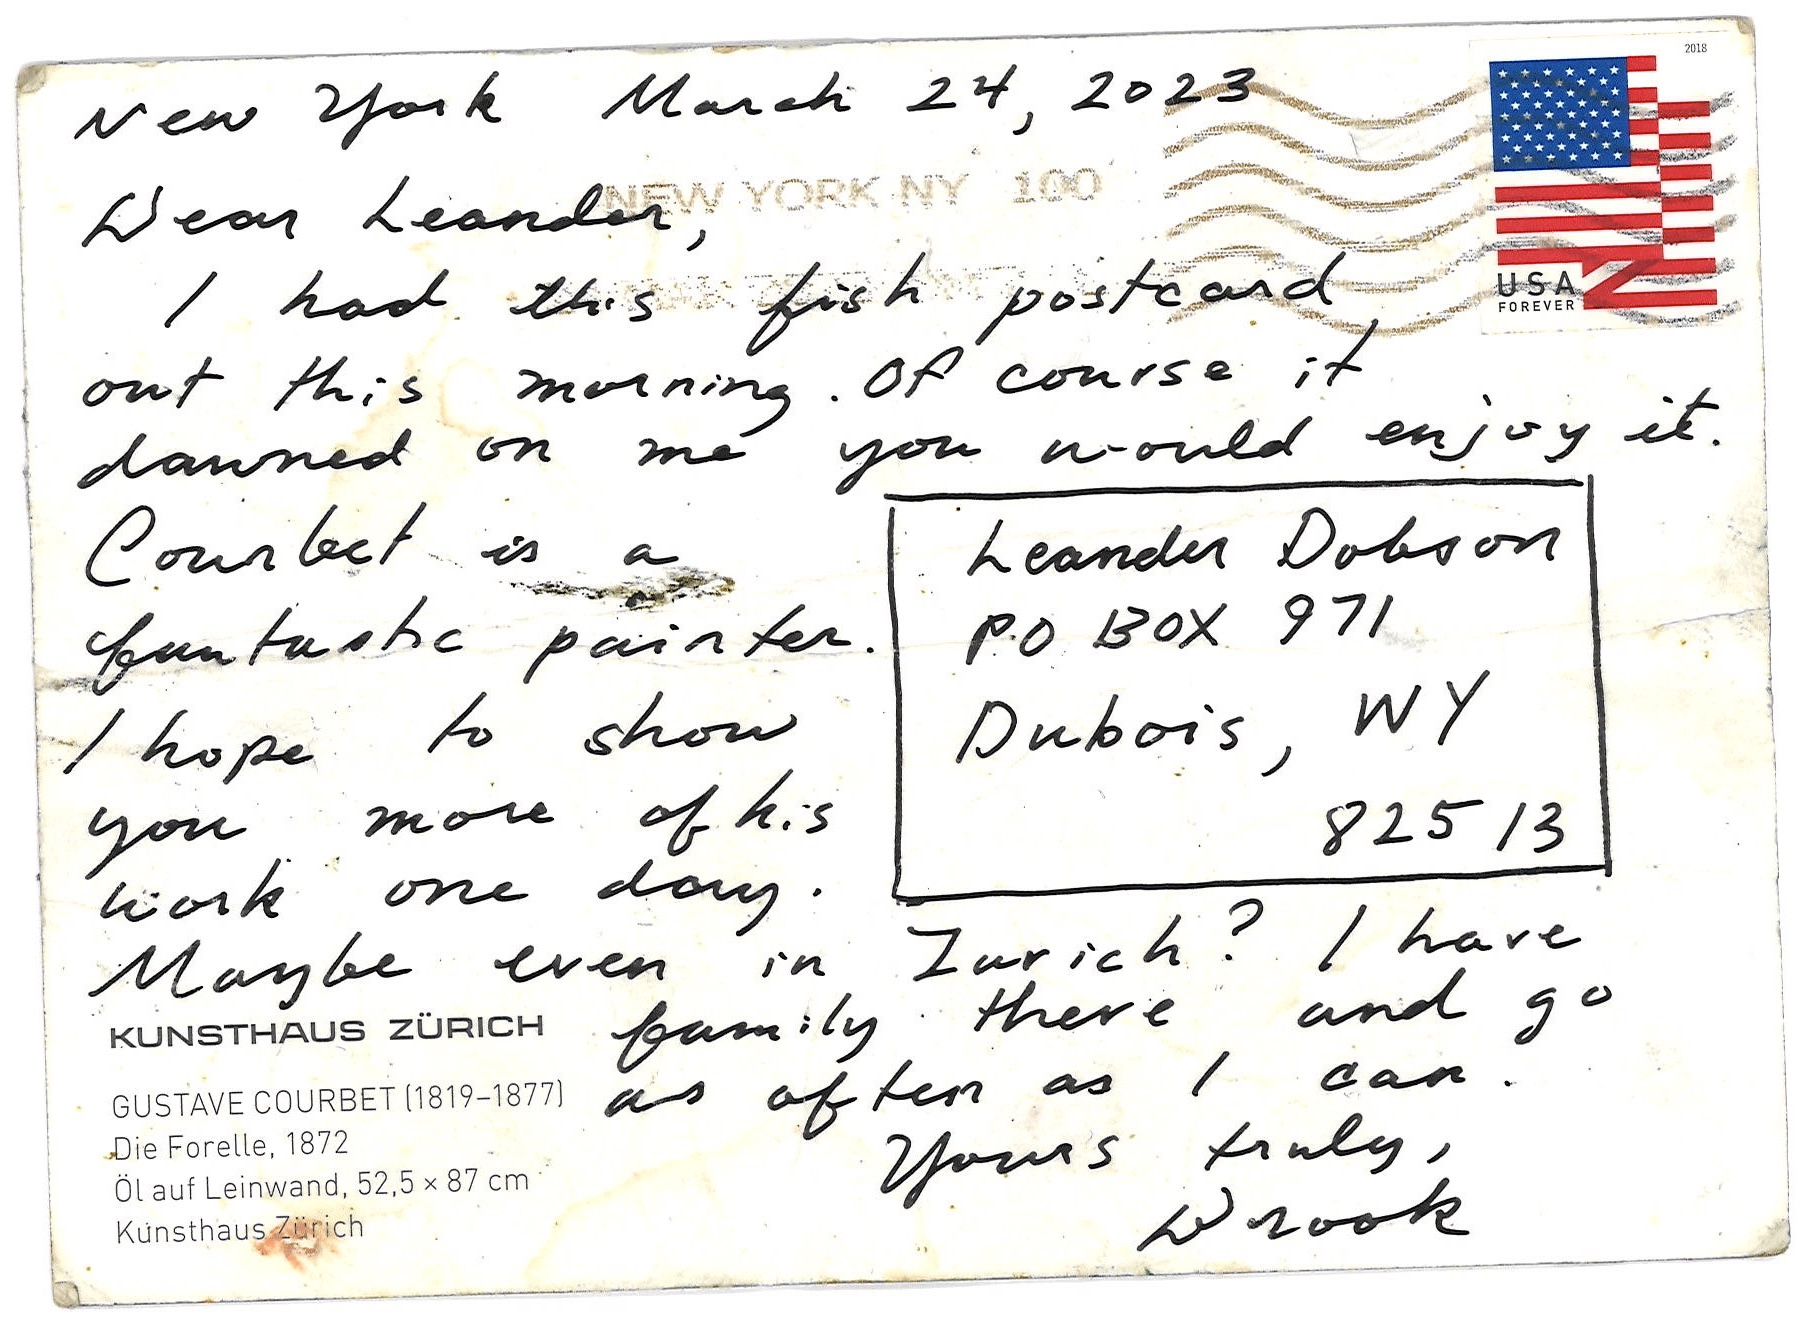 New York March 24, 2023
2018
NEW YORK NY 100
Dear Leander,
I had this fish postcard
USA
FOREVER
out this morning. Of course it
dawned on me you would enjoy it.
Courbet is a
fantastic painter.
I hope to show
you more of his
work one day.
Maybe even in Zurich? I have
family there and go
as often as I can.
Yours truly,
Leander Dobson
PO BOX 971
Dubois, WY
82513
KUNSTHAUS ZÜRICH
GUSTAVE COURBET (1819–1877)
Die Forelle, 1872
Öl auf Leinwand, 52,5 × 87 cm
Kunsthaus Zürich